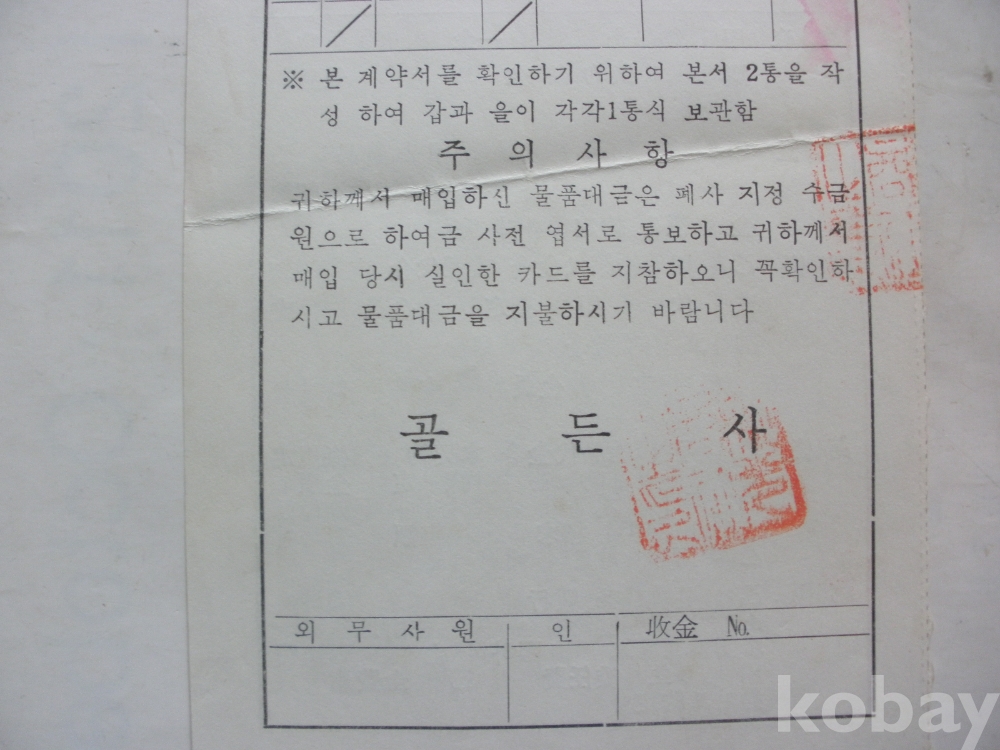 ※ 본 계약서를 확인하기 위하여 본서 2통을 작
성 하여 갑과 을이 각각1통식 보관함
주 의 사 항
귀하께서 매입하신 물품대금은 폐사 지정 수금
원으로 하여금 사전 엽서로 통보하고 귀하께서
매입 당시 실인한 카드를 지참하오니 꼭확인하
시고 물품대금을 지불하시기 바람니다
골 든 사
외 무 사 원 인 收金 No.
kobay